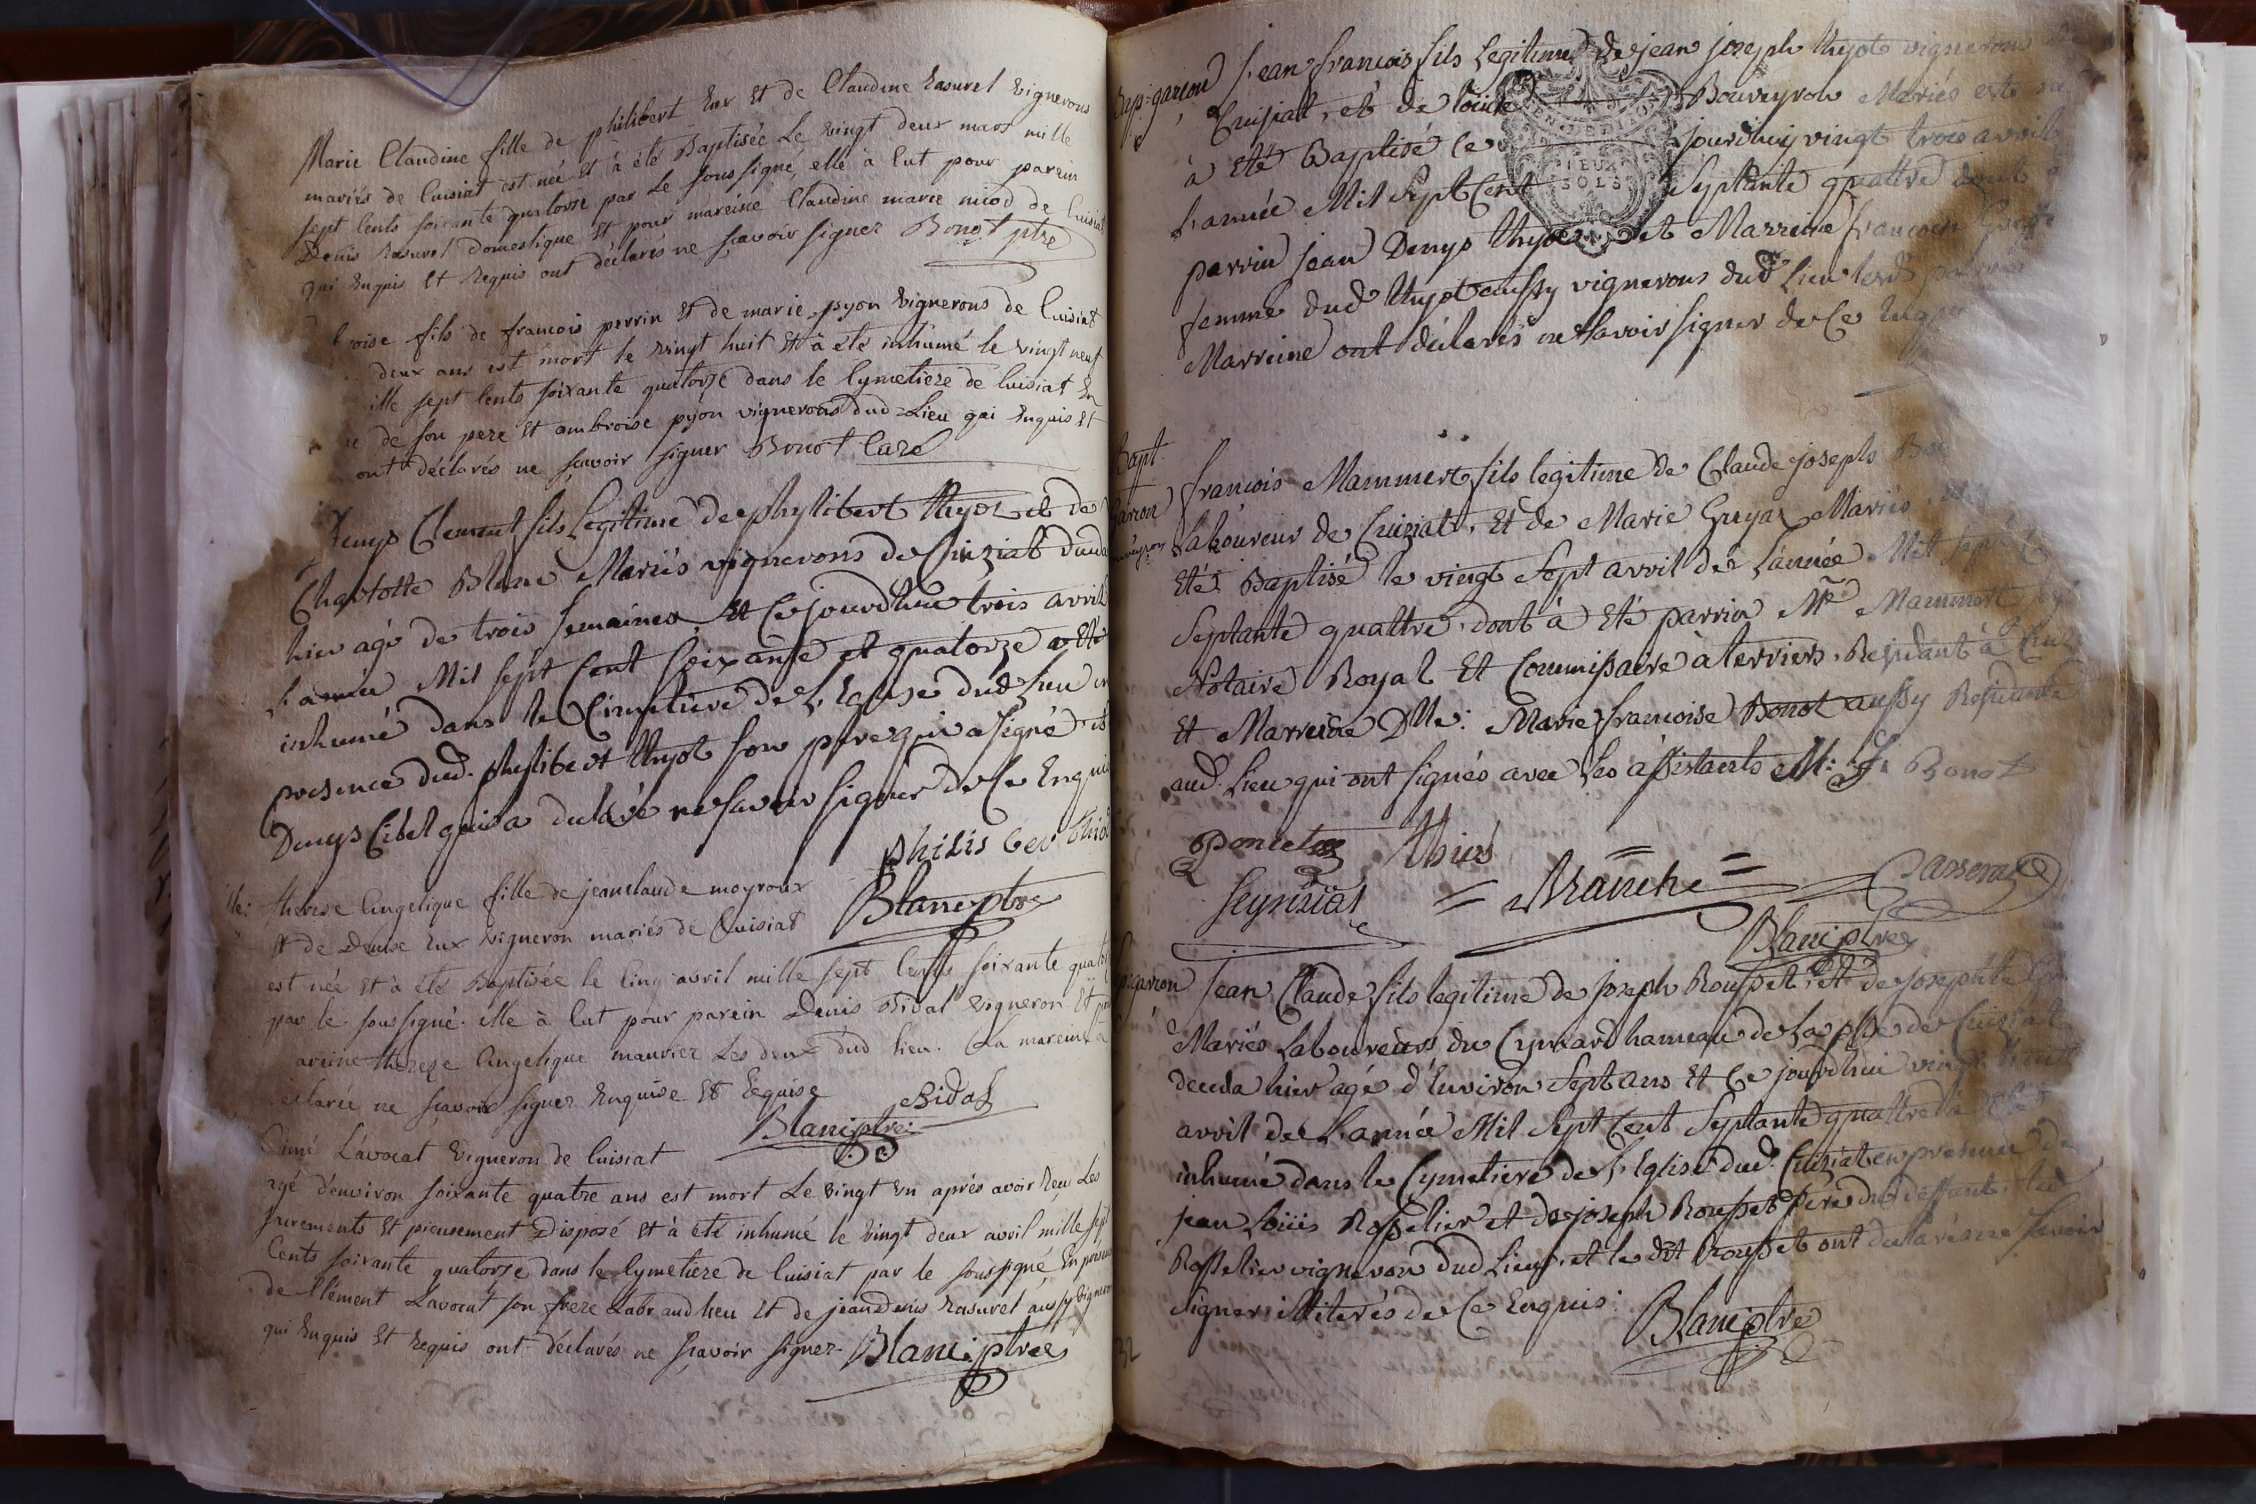 Marie Claudine fille de philibert Eur Et de Claudine Rasurel vignerons
mariés de Cuisiat est née Et à été Baptisée Le vingt deux mars mille
sept Cents soixante quatorse par Le sous signé, elle à Eut pour parein
Denis Rasurel Domestique Et pour mareine Claudine marie miod de Cuisiat
qui Enquis Et Requis ont déclarés ne sçavoir signer Bonot ptre
oise fils de francois perrin Et de marie pyon vignerons de Cuisiat
deux ans est mort le vingt huit Et à été inhumé le vingt neuf
ille sept Cents soixante quatorse dans le Cymetiere de Cuisiat En
de son pere Et ambroise pyon vignerons dud Lieu qui Enquis Et
ont déclarés ne sçavoir signer Bonot Curé
Denys Clement fils Legitime de phylibert thyot et de
Charlotte Blanc Mariés vignerons de Cuiziat
hier agé de trois semaines Et Ce jourdhui trois avril
L'année Mil sept Cent soixante et quatorze a Eté
inhumé dans le Cimetiere de L'Eglise dud Lieu en
presence dud. phylibert thyot son pere qui a signé et
Denys Cibel qui a declaré ne savoir signer de Ce Enquis
philibert thiot
therese Angelique fille de jeanclaude moyroux
Blanc ptre
Et de Denise Eux vigneron mariés de Cuisiat
est née Et à été Baptisée le Cinq avril mille sept Cents soixante quator
par le sous signé. elle à Eut pour parein Denis Bidal vigneron Et pour
areine therese Angelique mauvier Les deux dud lieu. La mareine à
éclarée ne sçavoir signer Enquise Et Requise
Bidal
Blanc ptre
Aimé Lavocat vigneron de Cuisiat
agé d'environ soixante quatre ans est mort Le vingt un après avoir Reçu Les
sacrements Et pieusement Disposé Et à été inhumé le vingt deux avril mille sept
Cents soixante quatorze dans le Cymetiere de Cuisiat par le soussigné En presence
de Clément Lavocat son frere Labr audlieu Et de jean Denis Rasurel aussy vigneron
qui Enquis Et Requis ont déclarés ne sçavoir signer. Blanc ptre
Bap. garçon
Jean francois fils Legitime de jean joseph thyot vigneron
Cuisiat, et de Louise Bouveyron Mariés est
à Eté Baptisé Ce jourdhuy vingt trois avril
L'année Mil Sept Cent Septante quattre dont
parrin jean Denys thyot et Marreine francoise
femme dud thyot aussy vignerons dud Lieu lesd parrin
Marreine ont déclarés ne savoir signer de Ce Enquis
Bapt.
garçon
francois Mammert fils legitime de Claude joseph
Laboureur de Cuiziat, Et de Marie Guyar Mariés
Eté Baptisé le vingt Sept avril de L'année Mil sept
Septante quattre. dont à Eté parrin Mr. Mammert
Notaire Royal Et Commissaire à terriers. Residant à
Et Marreine Dlle: Marie francoise Bonot aussy Residante
aud. Lieu qui ont signés avec Les assistants M: f. Bonot
Poncet thiers
Seyssiat Branche
Blanc ptre
garçon
Jean Claude fils legitime de Joseph Rousset, et de Josephte
Mariés Laboureurs du Cymard hameau de La psse de Cuisiat
deceda hier agé d'Environ Sept ans Et Ce jourdhui vingt huit
avril de L'année Mil Sept Cent Septante quattre à Eté
inhumé dans le Cymetiere de L'Eglise dud. Cuisiat en presence de
jean Loüis Rosselier et de joseph Rousset Père du deffunt. led
Rosselier vigneron dud Lieu, et le dit Rousset ont declarés ne savoir
signer illiterés de Ce Enquis:
Blanc ptre
32